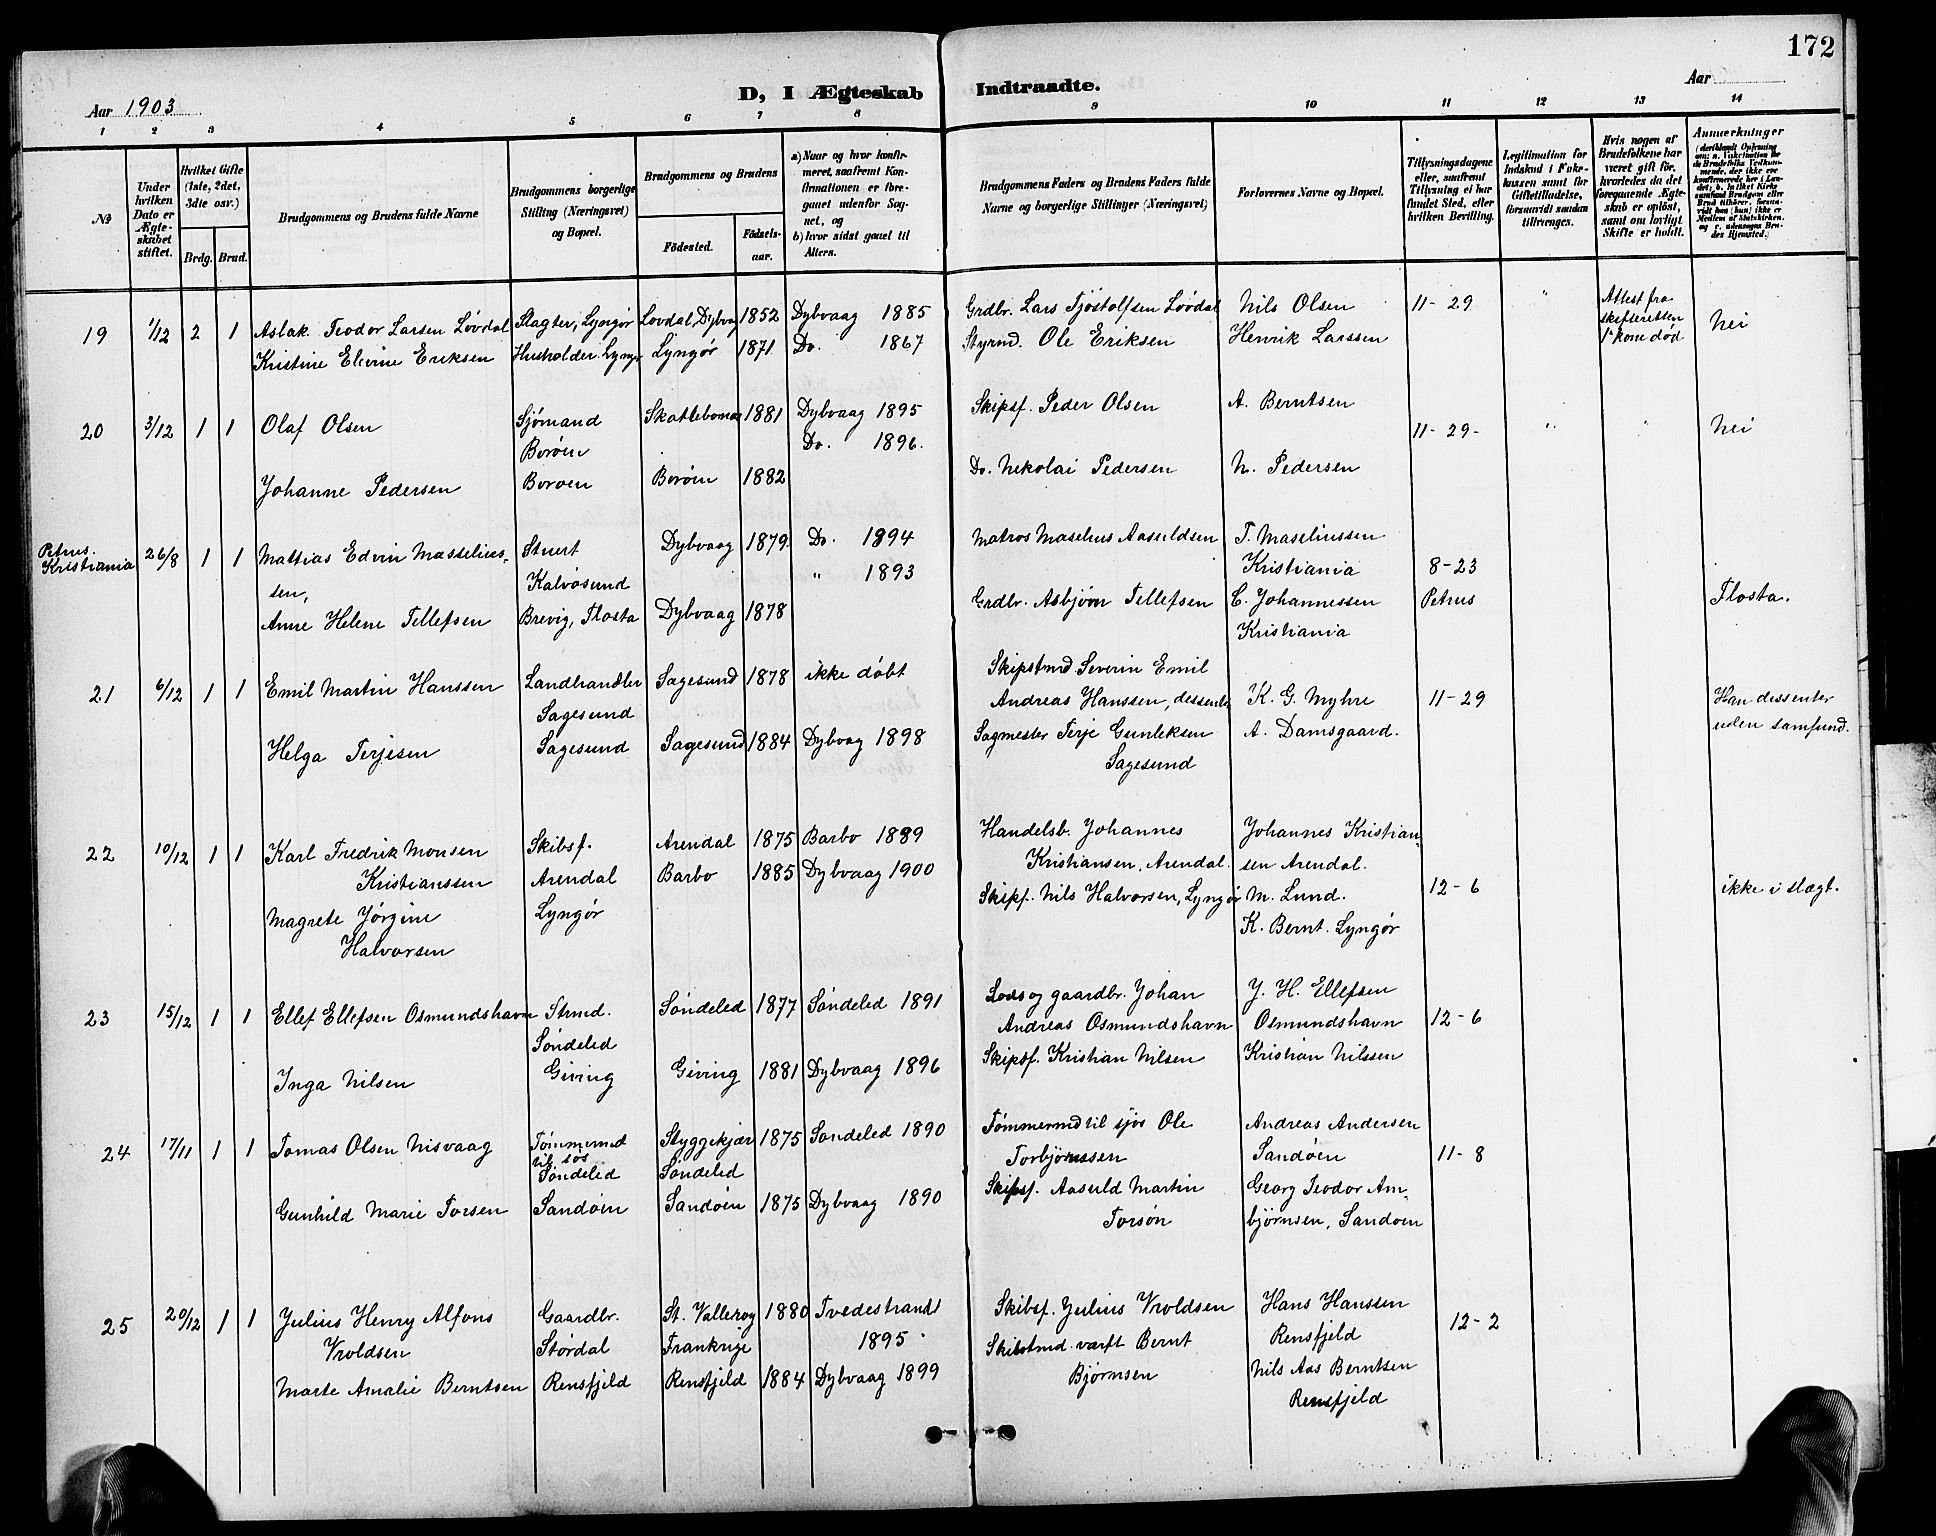 172
D, I Ægteskab Indtraadte.
Aar 1903
Aar
1 2 3 4 5 6 7 8 9 10 11 12 13 14
№
Under hvilken Dato er Ægteskabet stiftet.
Hvilket Gifte (1ste, 2det, 3die osv.)
Brdg. Brud.
Brudgommens og Brudens fulde Navne
Brudgommens borgerlige Stilling (Næringsvei) og Bopæl.
Brudgommens og Brudens
Födested. Födselsaar.
a) Naar og hvor konfirmeret, saafremt Konfirmationen er foregaaet udenfor Sognet, og
b) hvor sidst gaaet til Alters.
Brudgommens Faders og Brudens Faders fulde Navne og borgerlige Stillinger (Næringsvei)
Forlovernes Navne og Bopæl.
Tillysningsdagene eller, saafremt Tillysning ei har fundet Sted, efter hvilken Bevilling.
Legitimation for Indskud i Enkekassen samt for Giftetilladelse, forsaavidt saadan tiltrænges.
Hvis nogen af Brudefolkene har været gift før, hvorledes da det foregaaende Ægteskab er oplöst, samt om lovligt Skifte er holdt.
Anmærkninger
19 1/12 2 1 Aslak Teodor Larsen Lövdal Slagter, Lyngör Lovdal, Dybvag 1852 Dybvaag 1885 Grdbr. Lars Tjöstolfsen Lövdal Nils Olsen 11-29 " Attest fra skifteretten 1ª kone död Nei
Kristine Elevine Eriksen Husholder. Lyngr Lyngör 1871 Do. 1867 Styrmd. Ole Eriksen Henrik Larssen
20 3/12 1 1 Olaf Olsen Sjömand Skatlebonæs 1881 Dybvaag 1895 Skipsf. Peder Olsen A. Berntsen 11-29- " " Nei
Boröen Do. 1896.
Johanne Pedersen Boroen Boröen 1882 Do. Nikolai Pedersen N. Pedersen
Petrus. Kristiania 26/8 1 1 Mattias Edvin Masselius- Stuert Dybvaag 1879. Do. 1894 Matros Maselius Aasuldsen T. Maseliussen
sen, Kalvösund " 1893 Kristiania 8-23
Anne Helene Tellefsen Brevig, Flosta Dybvaag 1878 Grdbr. Asbjörn Tellefsen C. Johannessen Petrus Flosta.
Kristiania
21 6/12 1 1 Emil Martin Hanssen Landhandler Sagesund 1878 ikke döbt Skipstmd. Severin Emil
Sagesund Andreas Hanssen, dessenter K. G. Myhre 11-29 Han dessenter
Helga Terjesen Sagesund Sagesund 1884 Dybvag 1898 Sagmester Terje Gunleksen A. Damsgaard. uden samfund.
Sagesund
22 10/12 1 1 Karl Fredrik Monsen Skibsf. Arendal 1875 Barbo 1889 Handelsb. Johannes Johannes Kristian-
Kristianssen Arendal Barbo 1885 Dybvaag 1900 Kristiansen, Arendal. sen Arendal.
Magrete Jörgine Lyngör Skipf. Nils Halvorsen, Lyngör M. Lund. 12-6 ikke i slægt.
Halvorsen K. Bernt. Lyngör
23 15/12 1 1 Ellef Ellefsen Osmundshavn Strmd. Söndeled 1877 Söndeled 1891 Lods og gaardbr. Johan J. H. Ellefsen
Söndeled Andreas Osmundshavn Osmundshavn 12-6
Inga Nilsen Giving Giving 1881 Dybvaag 1896 Skipsf. Kristian Nilsen Kristian Nilssen
24 17/11 1 1 Tomas Olsen Nisvaag Tömmermd til sös Styggekjær 1875 Söndeled 1890 Tömmermd til sjös Ole Andreas Andersen
Söndeled Söndeled Torbjörnssen Sandöen 11-8
Gunhild Marie Torsen Sandöen Sandöen 1875 Dybvaag 1890 Skipsf. Aasuld Martin Georg Teodor Am-
Torsön björnsen, Sandoen
25 20/12 1 1 Julius Henry Alfons Gaardbr. St. Valleroy 1880 Tvedestrand Skibsf. Julius Vroldsen Hans Hanssen 12-2
Vroldsen Stördal Frankrige 1895 Skibstmd. værft Bernt Rensfjeld
Marte Amalie Berntsen Rensfjeld Rensfjeld 1884 Dybvaag 1899 Björnsen Nils Aas Berntsen
Rensfjeld